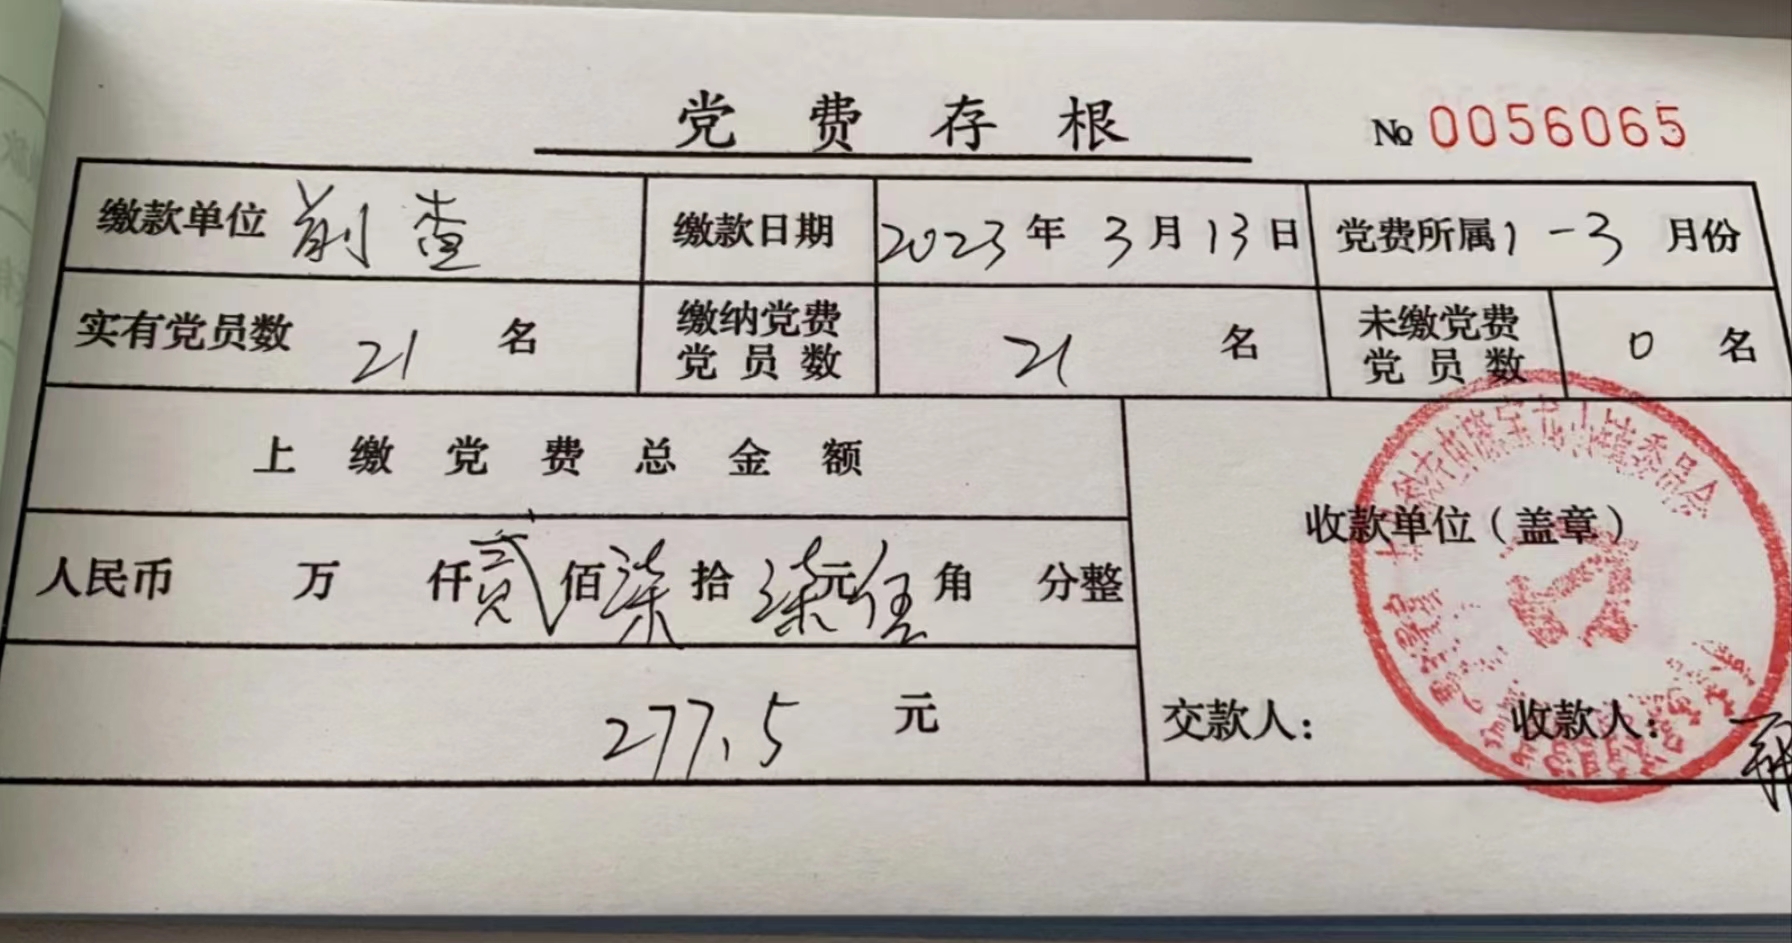 党费存根
№ 0056065
缴款单位 前查 缴款日期 2023年3月13日 党费所属1-3月份
实有党员数 21 名 缴纳党费党员数 21 名 未缴党费党员数 0 名
上缴党费总金额
收款单位（盖章）
人民币 万 仟贰佰柒拾柒元伍角 分整
277.5 元
交款人： 收款人：
宝龙山镇委员会